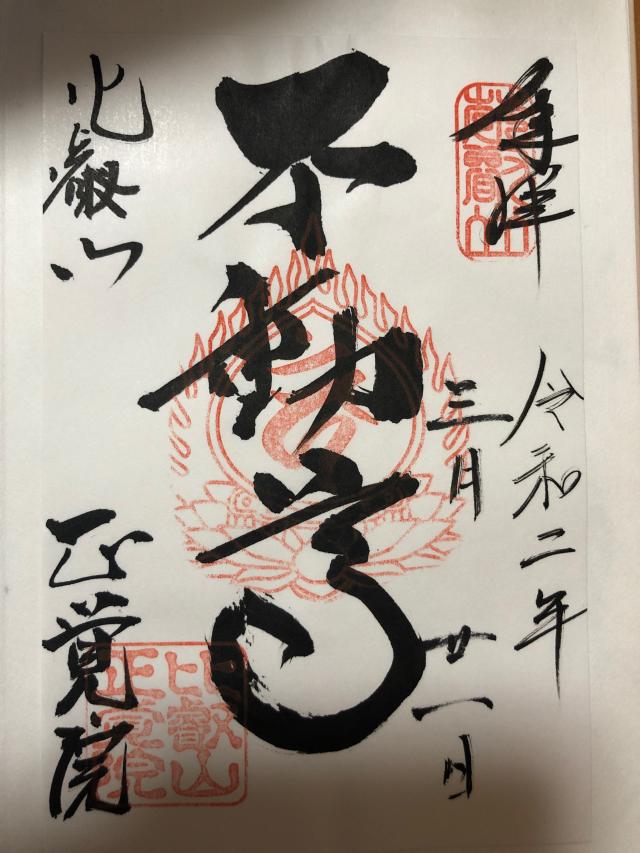 奉拝
令和二年
三月廿一日
不動尊
比叡山
正覚院
比叡山
正覺院